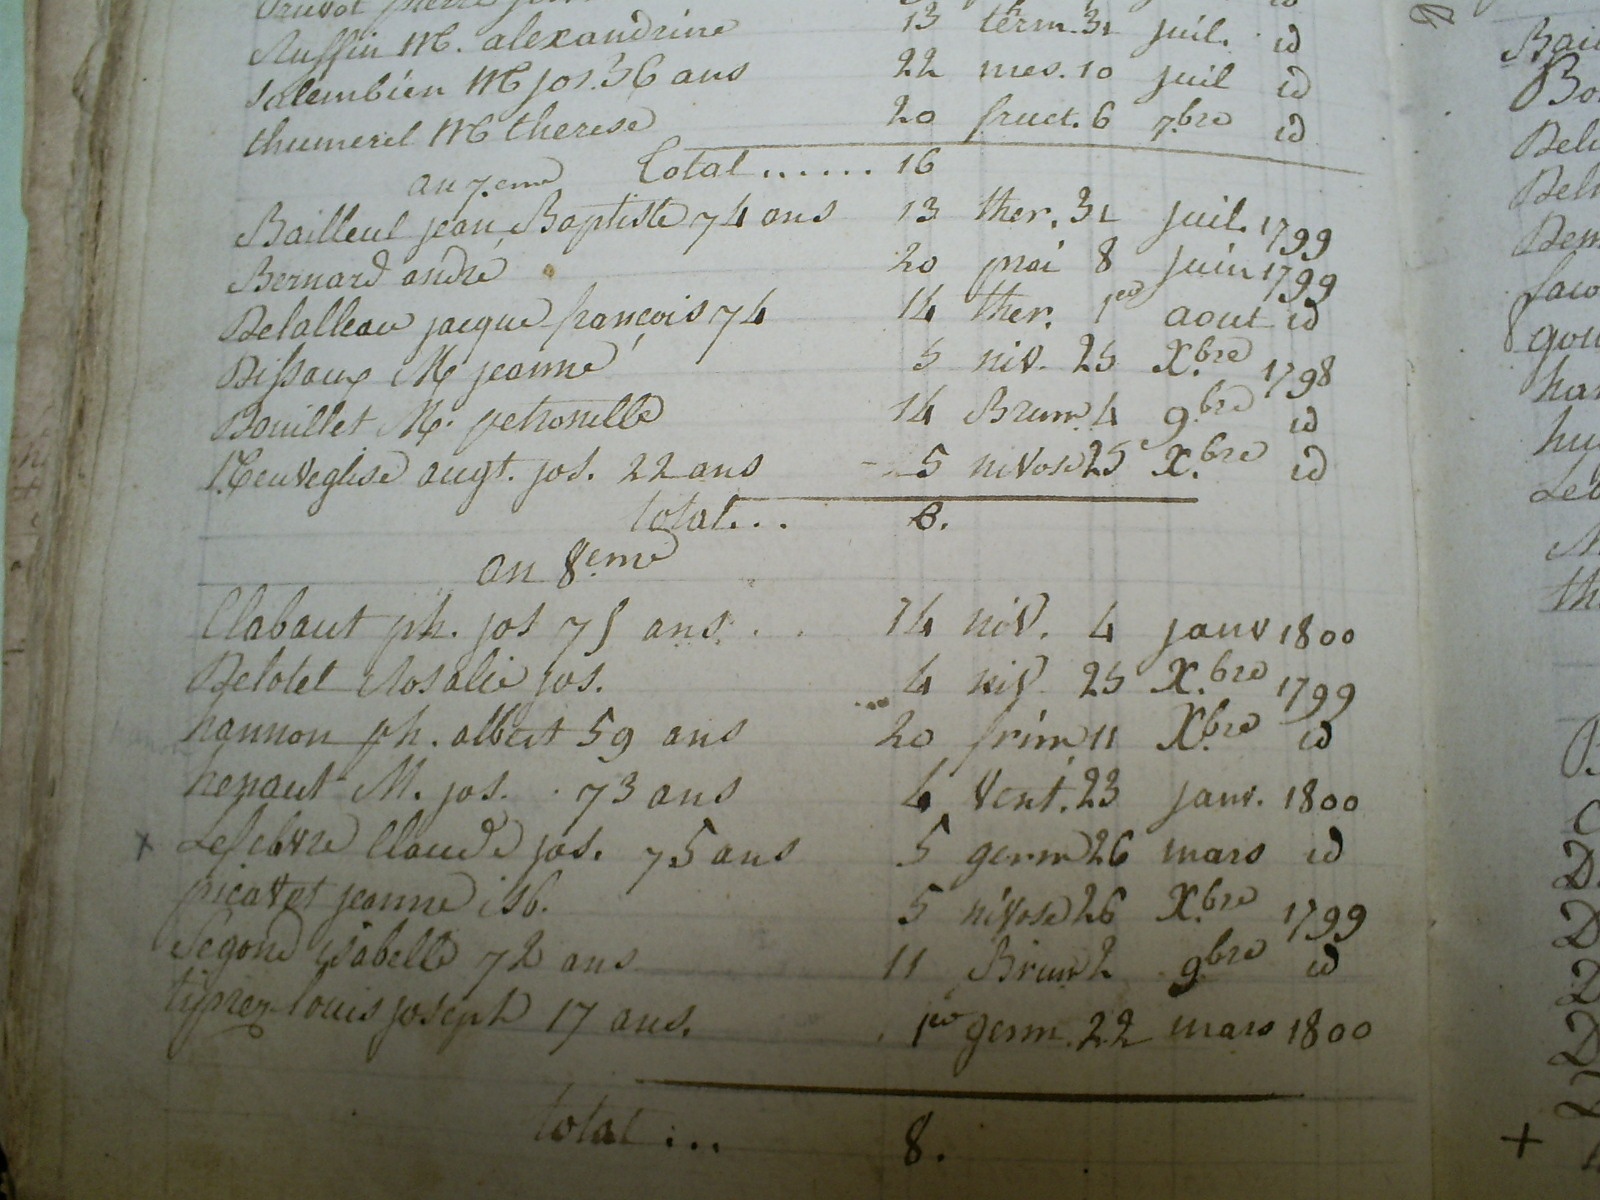 Ruffin M. alexandrine 13 therm. 31 juil. id
Salembien M jos. 36 ans 22 mes. 10 juil id
thumerel M therese 20 fruct. 6 7.bre id
Total ...... 16
an 7.eme
Bailleul jean Baptiste 74 ans 13 ther. 31 juil. 1799
Bernard andré 20 prai 8 juin 1799
Delalleau jacque françois 74 14 ther. 1er aout id
Dissaux M jeanne 5 niv. 25 X.bre 1798
Douillet M. petronille 14 Brum. 4 9.bre id
Neuveglise augt. jos. 22 ans 5 nivose 25 X.bre id
total... 6.
an 8.eme
Clabaut ph. jos 75 ans . . 14 niv. 4 janv 1800
Delotel Rosalie jos. 4 niv 25 X.bre 1799
hannon ph. albert 59 ans 20 frim 11 X.bre id
henaut M. jos. 73 ans 4 vent. 23 janv. 1800
+ Lefebvre Claude jos. 75 ans 5 germ 26 mars id
picavet jeanne is b. 5 nivose 26 X.bre 1799
Segond isabelle 72 ans 11 Brum 2 9.bre id
louis joseph 17 ans. 1er germ. 22 mars 1800
total ... 8.
Bail
Bo
Dela
Delr
Dem
gou
har
hu
Leb
th
B
C
D
D
D
D
+